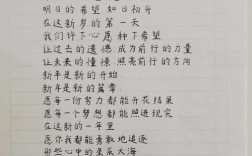 明日的希望 如日初升
在这新岁的第一天
我们许下心愿 种下希望
让过去的遗憾,成为前行的力量
让未来的憧憬,照亮前行的方向
新年是新的开始
新年是新的篇章
愿每一份努力都能开花结果
愿每一个梦想都能照进现实
在这新的一年里
愿你我都能勇敢地追逐
那些心中的星辰大海